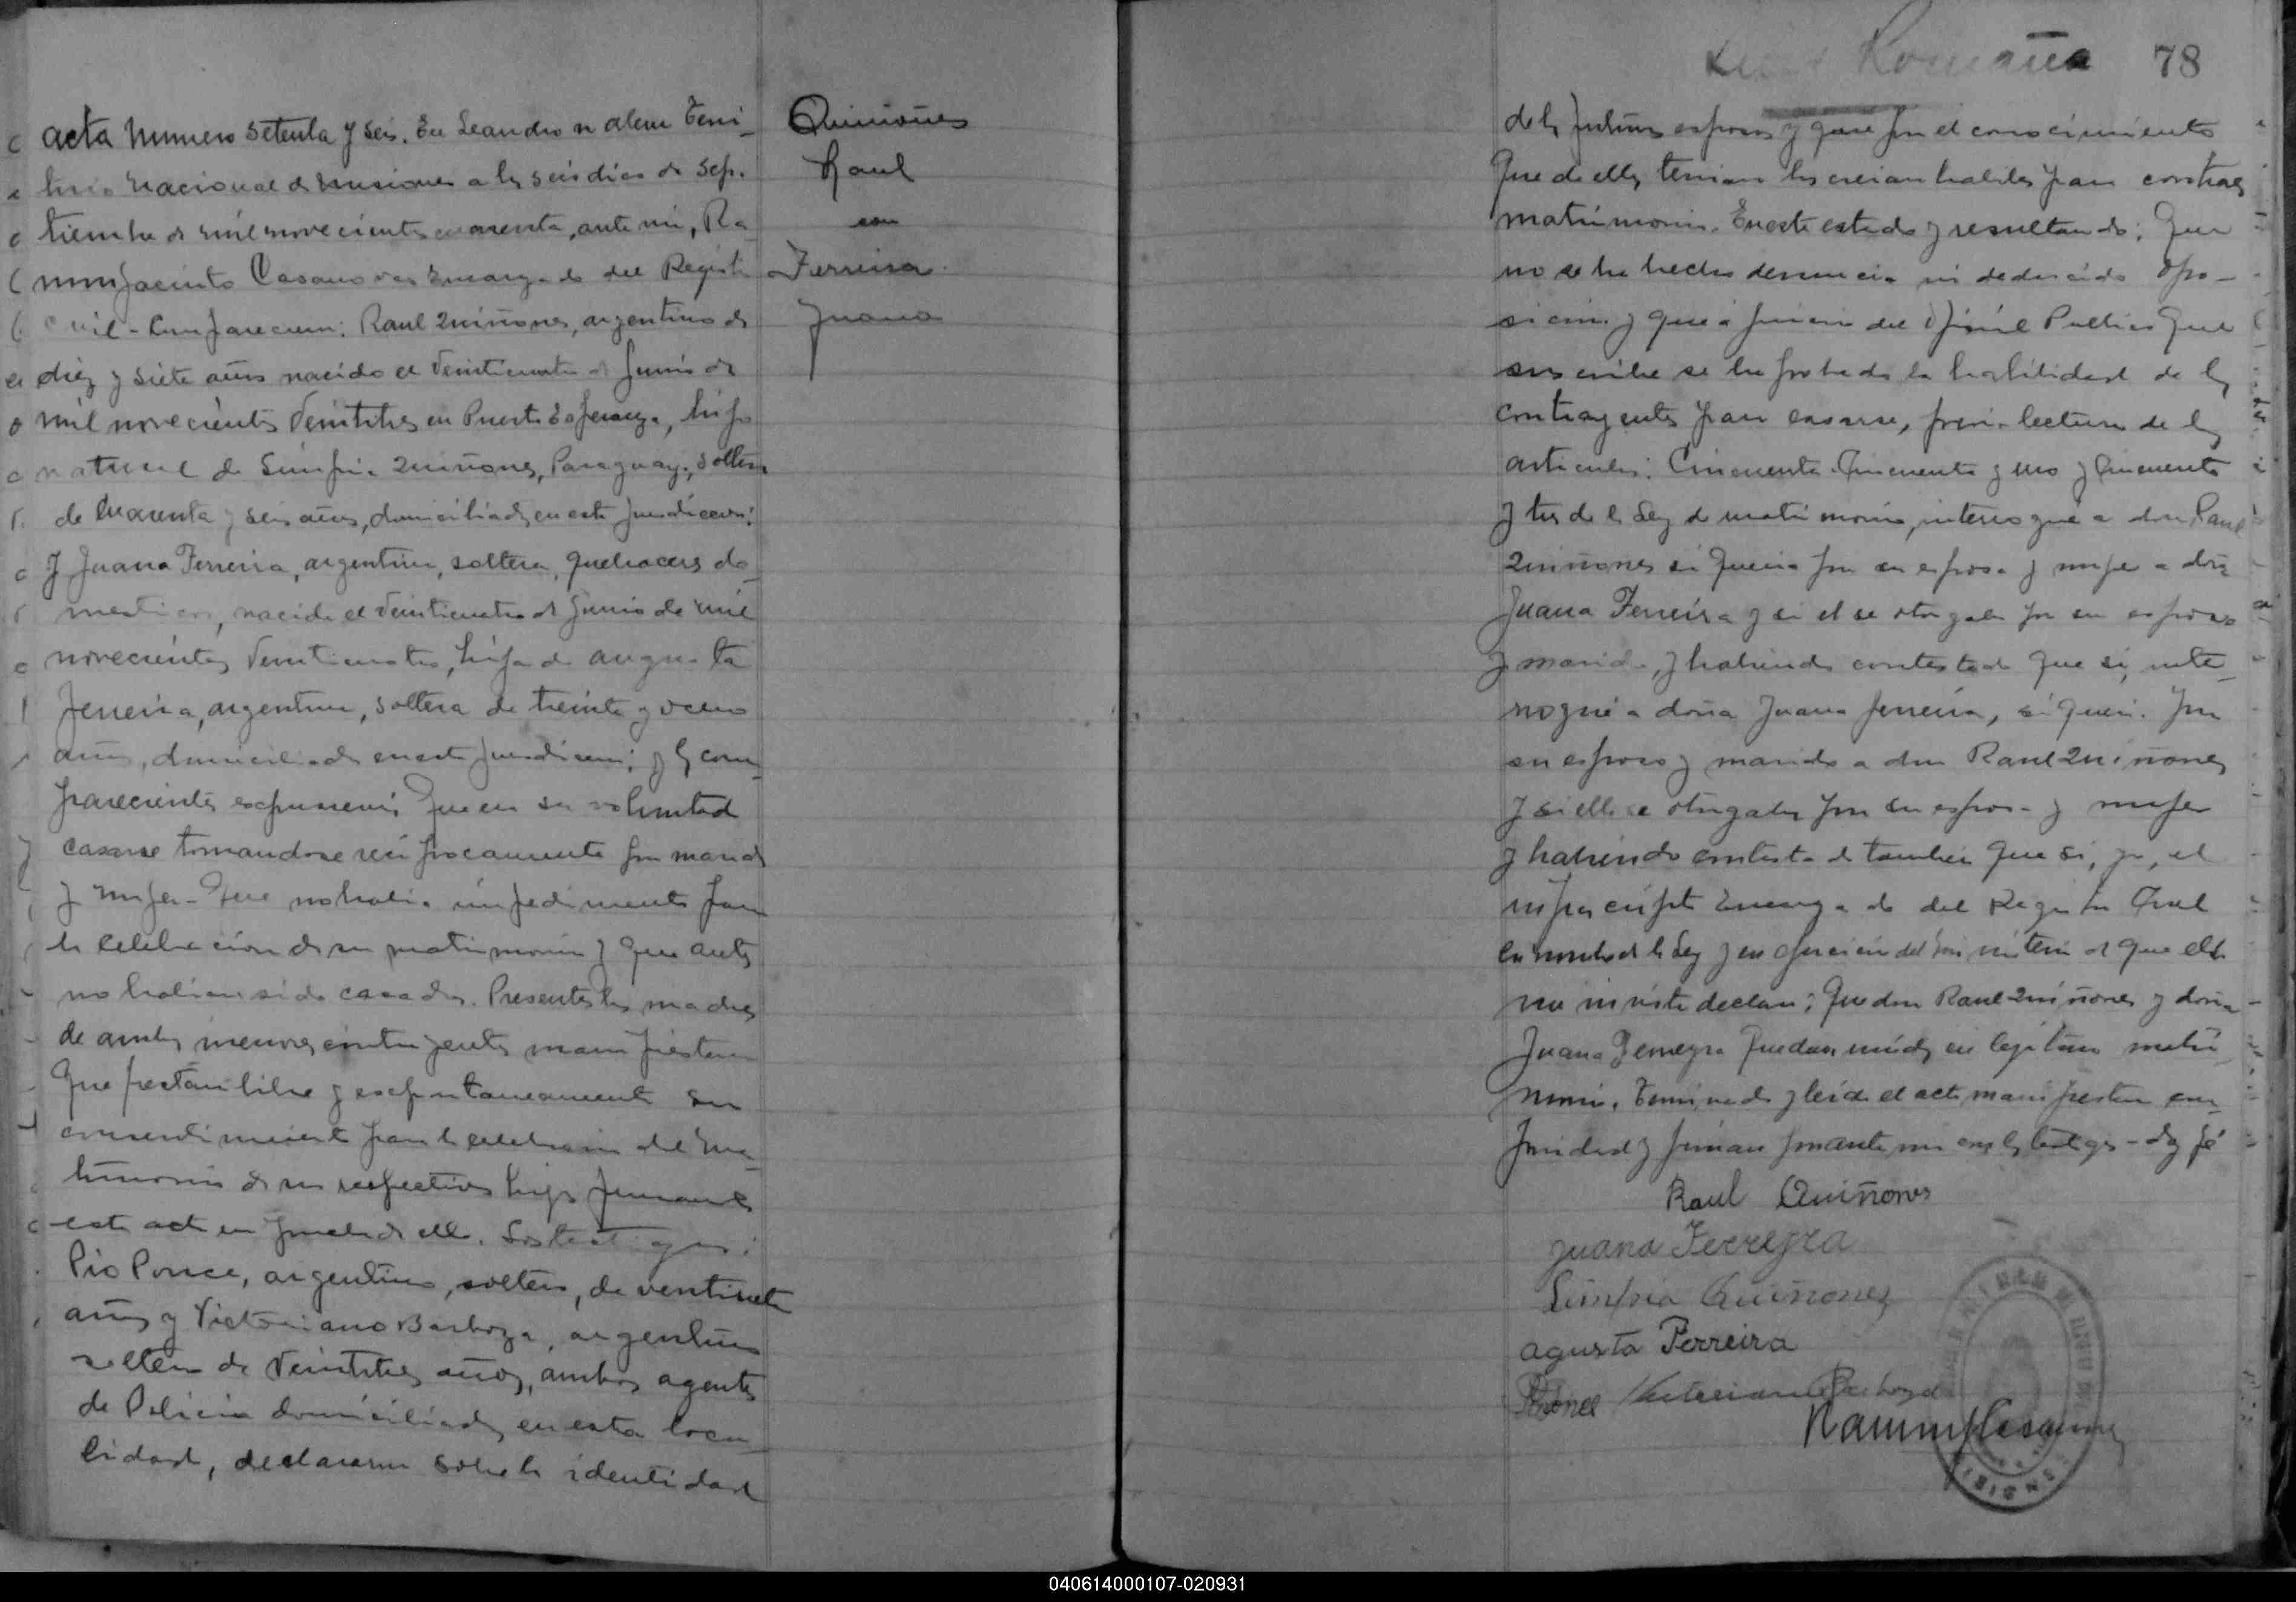 acta numero setenta y seis. En Leandro n alem Terri-
torio nacional de misiones a los seis dias de Sep-
tiembre de mil novecientos cuarenta, ante mi, Ra
mon Jacinto Casanovas Encargado del Registro
Civil - Comparecieron: Raul Quiñones, argentino de
diez y siete años nacido el Veinticuatro de Junio de
mil novecientos Veintitres en Puerto Esperanza, hijo
natural de Simfria Quiñones, Paraguaya, soltera
de Cuarenta y seis años, domiciliados en esta jurisdiccion;
y Juana Ferreira, argentina, soltera, quehaceres do-
mesticos, nacida el Veinticuatro de Junio de mil
novecientos Veinticuatro, hija de augusta
Ferreira, argentina, soltera de treinta y ocho
años, domiciliada en esta jurisdiccion; y los com-
parecientes expusieron: Que era su voluntad
casarse tomandose reciprocamente por marido
y mujer - Que no habia impedimento para
la celebracion de su matrimonio y que antes
no habian sido casados. Presentes las madres
de ambos menores contrayentes manifiestan
Que prestan libre y espontaneamente su
consentimiento para la celebracion del ma-
trimonio de sus respectivos hijos firmando
esta acta en prueba de ello. Los testigos:
Pio Ponce, argentino, soltero, de ventisiete
años y Victoriano Barboza, argentino
soltero de Veintitres años, ambos agentes
de Policia domiciliados en esta loca-
lidad, declararon sobre la identidad
Quiniones
Raul
con
Ferreira
Juana
Romaña 78
de los futuros esposos y que por el conocimiento
Que de ellos tenian los creian habiles para contraer
matrimonio. En este estado y resultando: Que
no se ha hecho denuncia ni deducido opo-
sicion y que a juicio del Oficial Publico Que
suscribe se ha probado la habilidad de los
contrayentes para casarse, previa lectura de los
articulos: Cincuenta Cincuenta y uno y Cincuenta
y tres de la Ley de matrimonio, interrogué a don Raul
Quiñones si queria por su esposa y mujer a doña
Juana Ferreira y si el se otorgaba por su esposo
y marido, y habiendo contestado que si, inte-
rrogué a doña Juana Ferreira, si queria por
su esposo y marido a don Raul Quiñones
y si ella se otorgaba por su esposa y mujer
y habiendo contestado tambien que si, yo, el
infrascripto Encargado del Registro Civil
en nombre de la Ley y en ejercicio del ministerio de que ella
me inviste declaro: Que don Raul Quiñones y doña
Juana Ferreyra quedan unidos en legitimo matri
monio. Terminado y leida el acta manifiestan con-
formidad y firman por ante mi con los testigos - doy fé
Raul Quiñones
Juana Ferreyra
Simfria Quiñones
agusta Ferreira
PPonce Victoriano Barboza
Ramon J Casanovas
040614000107-020931